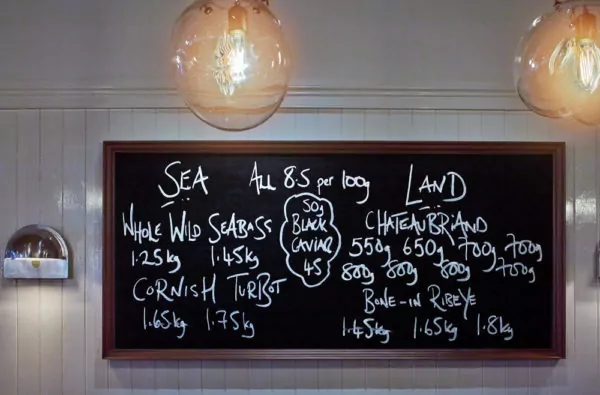 SEA
ALL 8.5 per 100g
LAND
WHOLE WILD SEABASS
1.25kg 1.45kg
CORNISH TURBOT
1.65kg 1.75kg
50g
BLACK
CAVIAR
45
CHATEAUBRIAND
550g 650g 700g 700g
800g 800g 800g 700g
BONE-IN RIBEYE
1.45kg 1.65kg 1.8kg